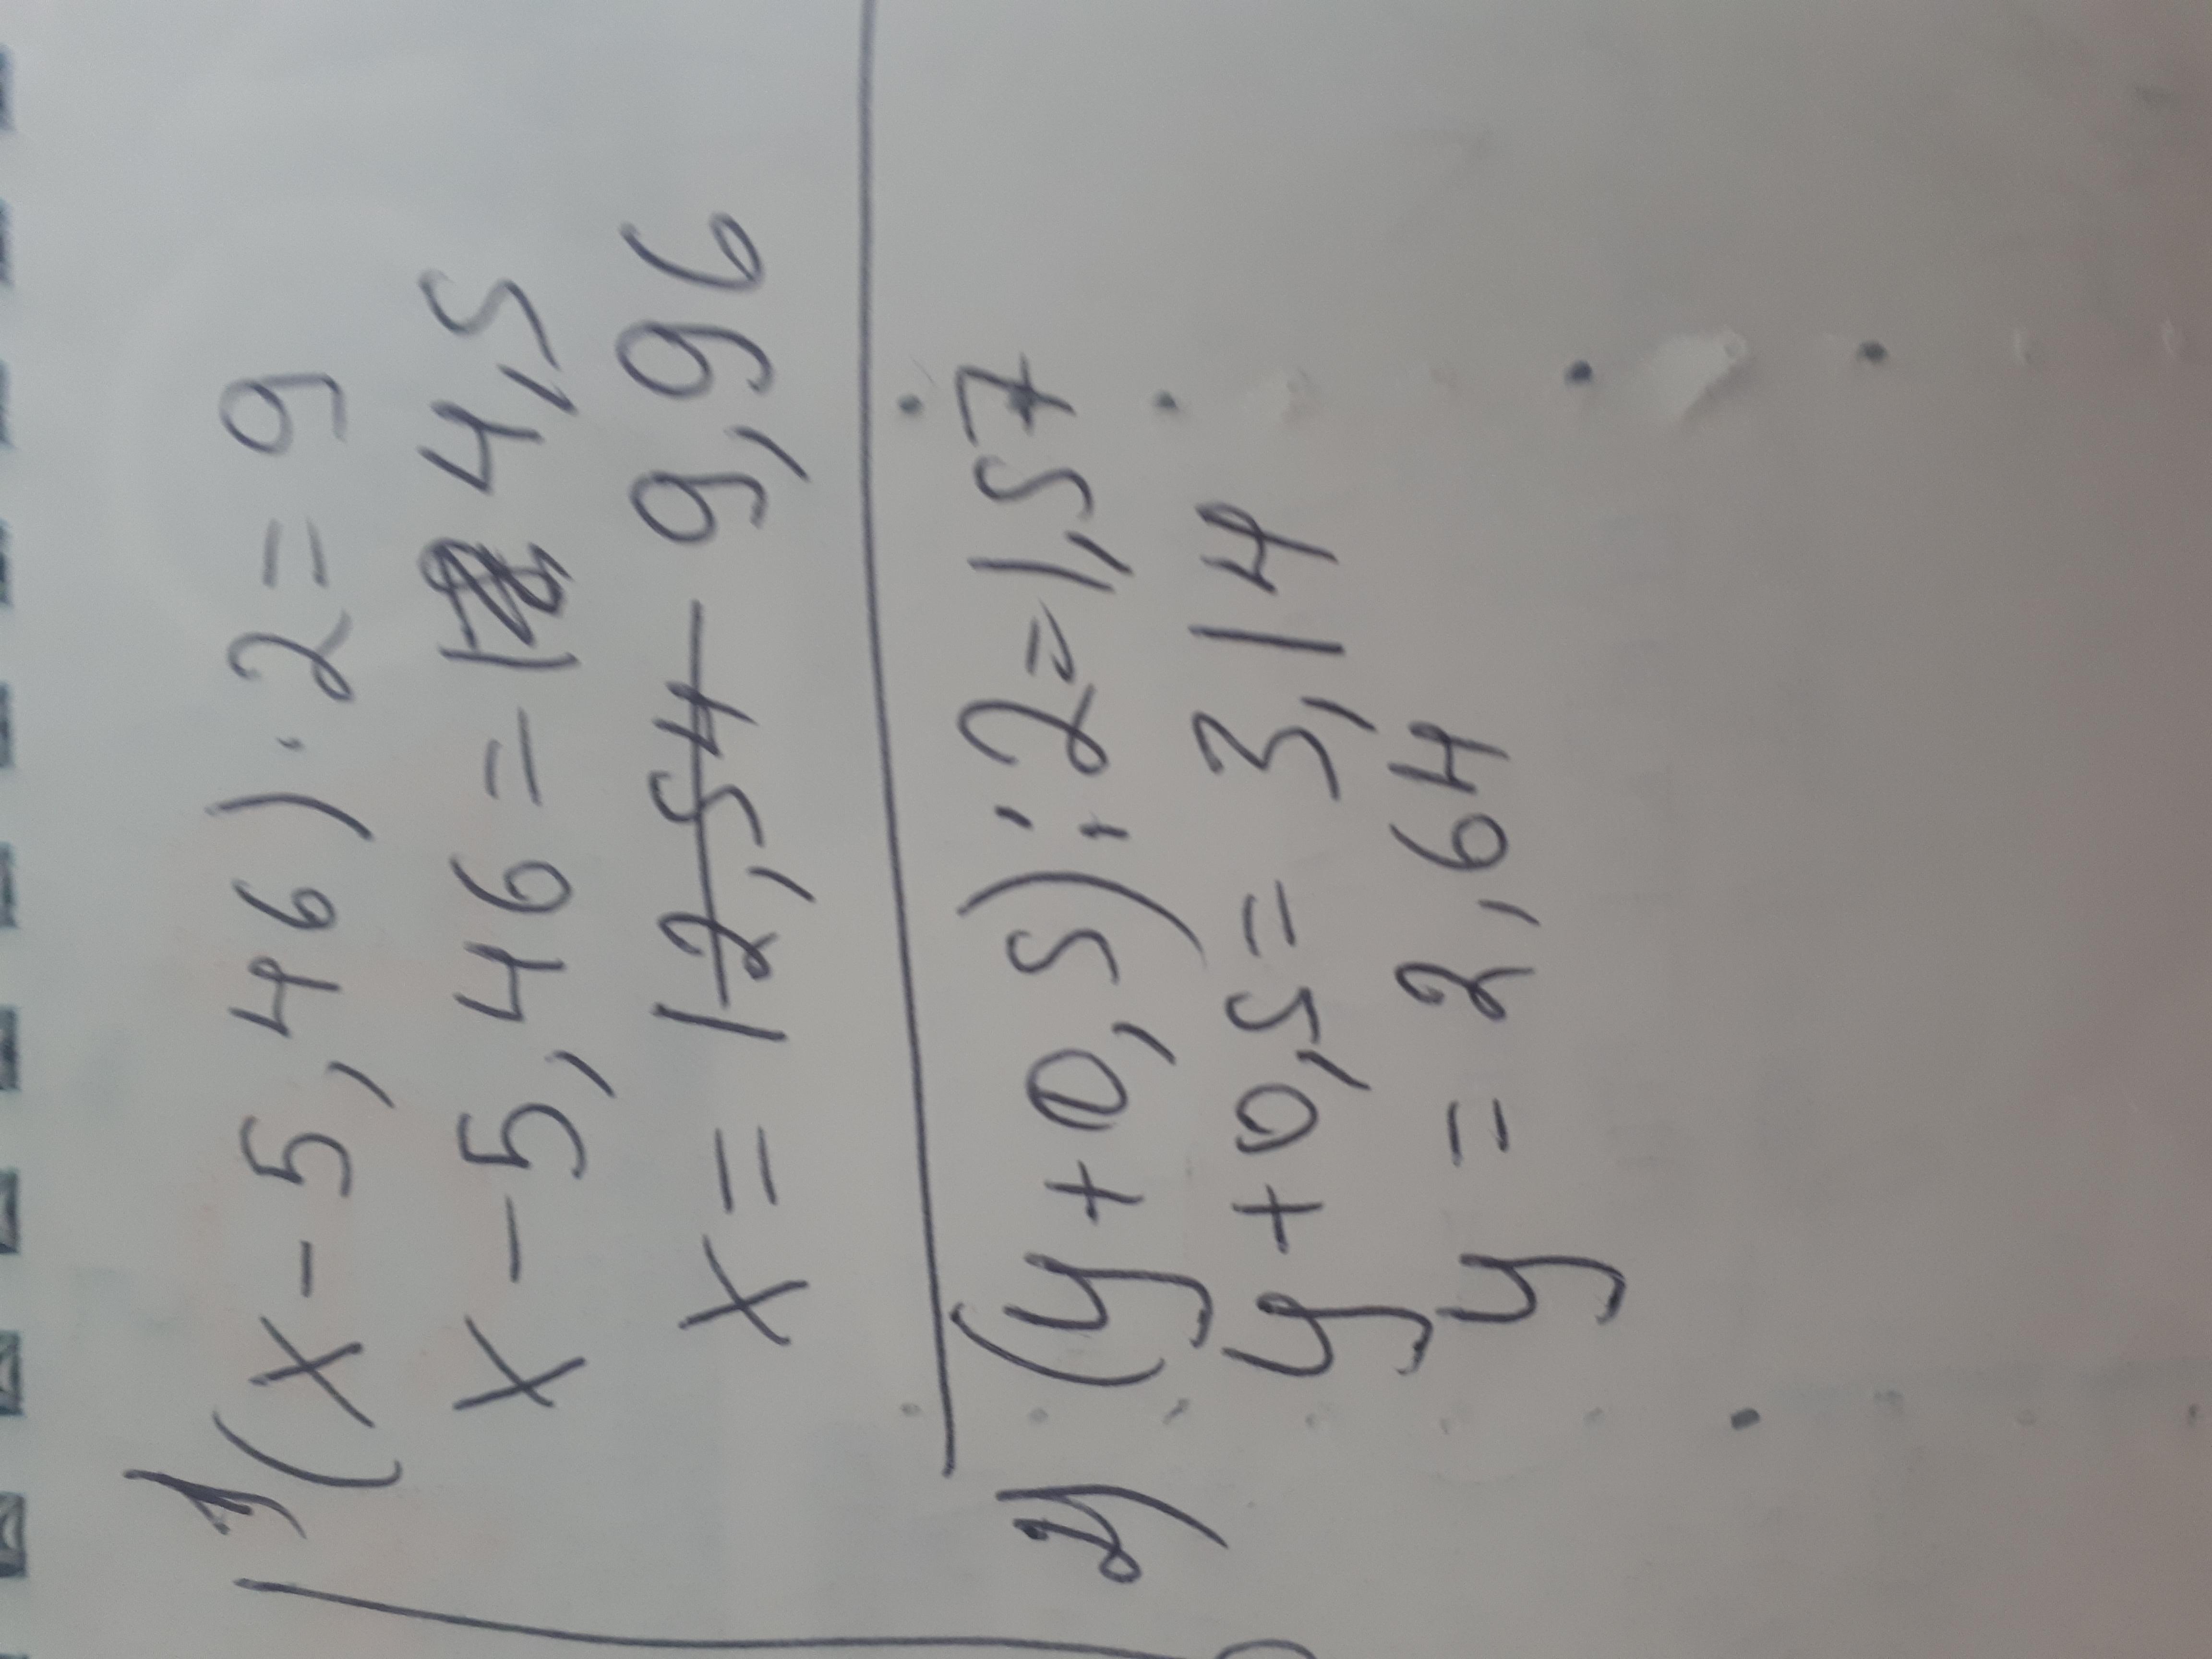 1) (x - 5,46) · 2 = 9
x - 5,46 = 4,5
x = 12,54 9,96
2) (y + 0,5) : 2 = 1,57
y + 0,5 = 3,14
y = 2,64